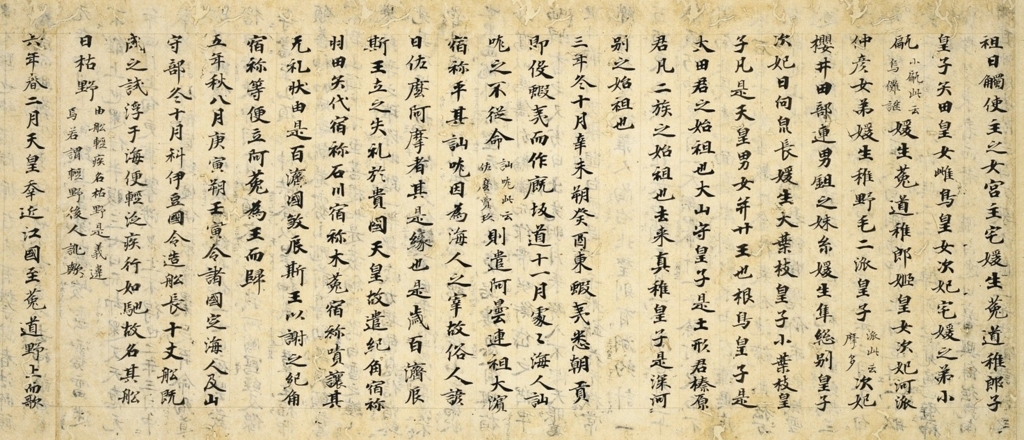 祖日觸使主之女宮主宅媛生菟道稚郎子
皇子矢田皇女雌鳥皇女次妃宅媛之弟小
甂小甂此云烏儺謎媛生菟道稚郎姫皇女次妃河派
仲彦女弟媛生稚野毛二派皇子派此云摩多次妃
櫻井田部連男鉏之妹糸媛生隼総別皇子
次妃日向泉長媛生大葉枝皇子小葉枝皇
子凡是天皇男女并廿王也根鳥皇子是
大田君之始祖也大山守皇子是土形君榛原
君凡二族之始祖也去来真稚皇子是深河
別之始祖也
三年冬十月辛未朔癸酉東蝦夷悉朝貢
即役蝦夷而作厩坂道十一月處々海人訕
哤之不従命訕哤此云佐麼賣玖則遣阿曇連祖大濱
宿祢平其訕哤因為海人之宰故俗人諺
曰佐麼阿摩者其是縁也是歳百濟辰
斯王立之失礼於貴國天皇故遣紀角宿祢
羽田矢代宿祢石川宿祢木菟宿祢嘖讓其
无礼状由是百濟國敦辰斯王以謝之紀角
宿祢等便立阿菟為王而歸
五年秋八月庚寅朔壬寅令諸國定海人及山
守部冬十月科伊豆國令造舩長十丈舩既
成之試浮于海便輕泛疾行如馳故名其舩
曰枯野由舩輕疾名枯野是義違焉若謂輕野後人訛歟
六年春二月天皇幸近江國至菟道野上而歌